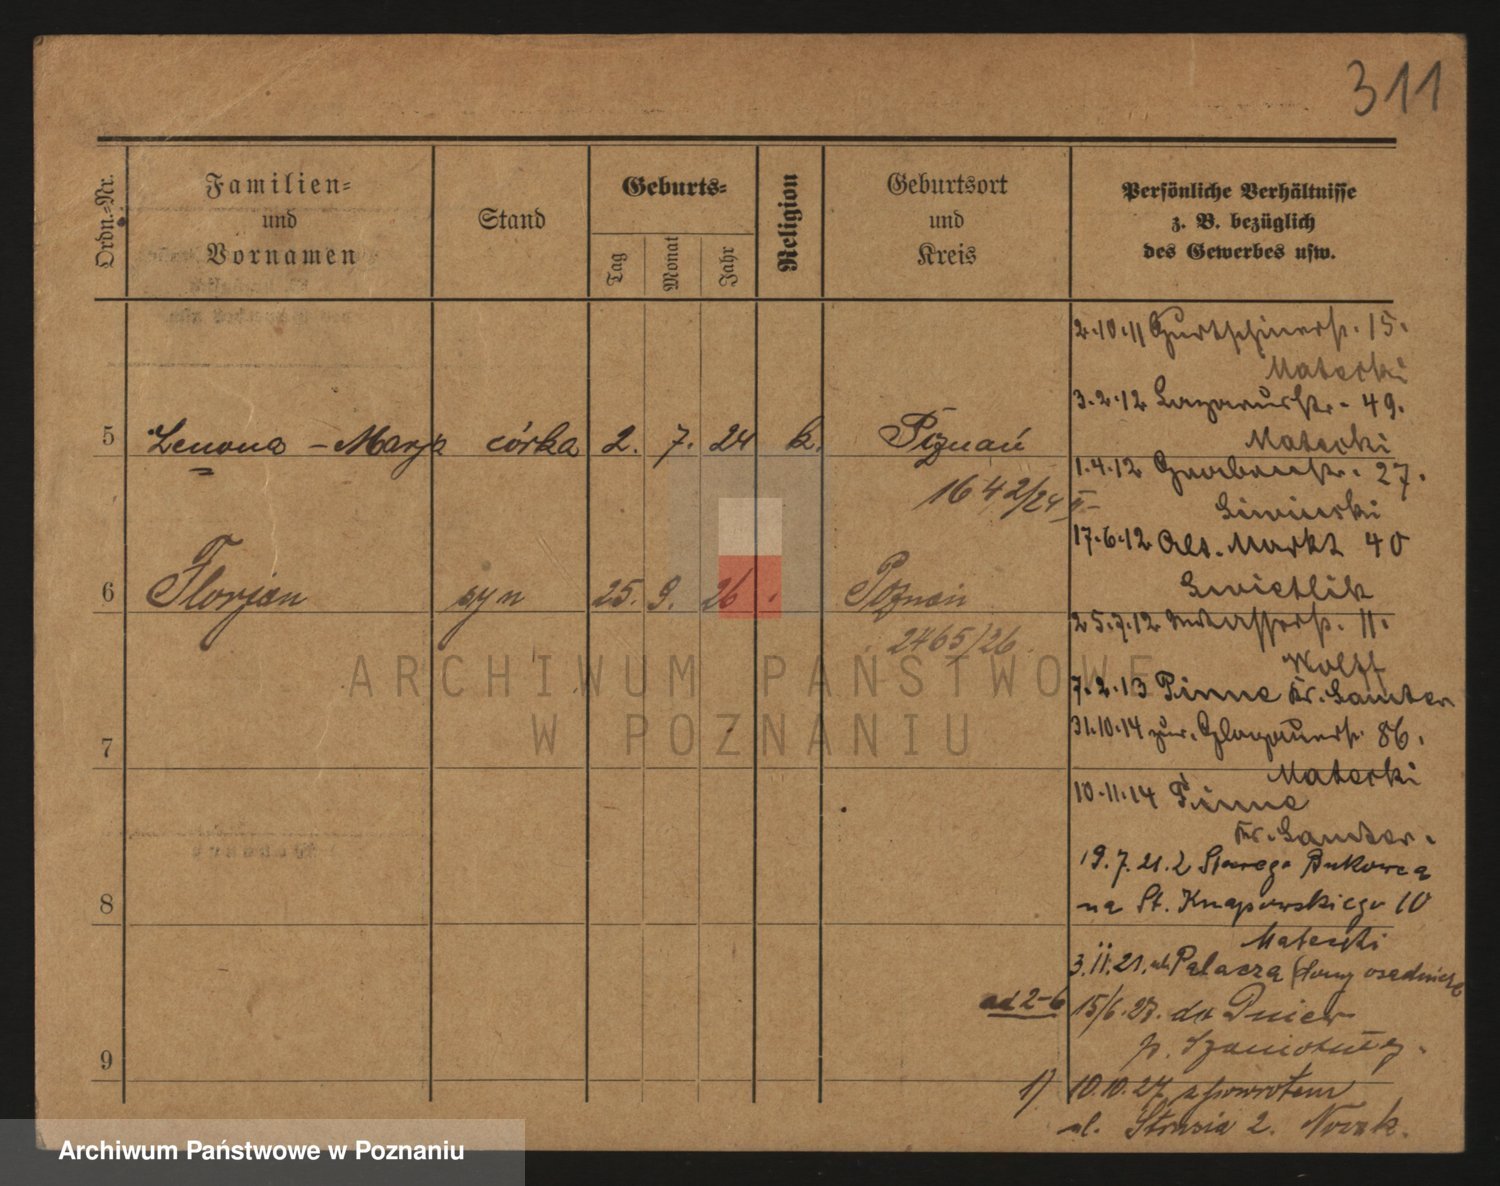 311
Ordn.-Nr.
Familien-
und
Vornamen
Stand
Geburts-
Tag
Monat
Jahr
Religion
Geburtsort
und
Kreis
Persönliche Verhältnisse
z. B. bezüglich
des Gewerbes usw.
5 Zenona - Marja córka 2. 7. 24 k. Poznań
1642/24 II
6 Florjan syn 25. 9. 26 Poznań
2465/26
7
8
9
2.10.11 Gurtschinerstr. 15.
Materki
3.2.12 Lazarusstr. 49.
Materki
1.4.12 27.
17.6.12 Alt. Markt 40
Swietlik
25.7.12 11.
Wolff
7.2.13 Pinne Kr. Samter
31.10.14 zur. Glogauerstr. 86.
Materki
10.11.14 Pinne
Kr. Samter.
19.7.21. z Starego Bukowca
na St. Knapowskiego 10
Materki
3.11.21. Palacza
ad 2-6 15/6.27. do
p. Szamotuły.
1) 10.10.27 z powrotem
ul. Strusia 2. Nowak.
ARCHIWUM PAŃSTWOWE
W POZNANIU
Archiwum Państwowe w Poznaniu